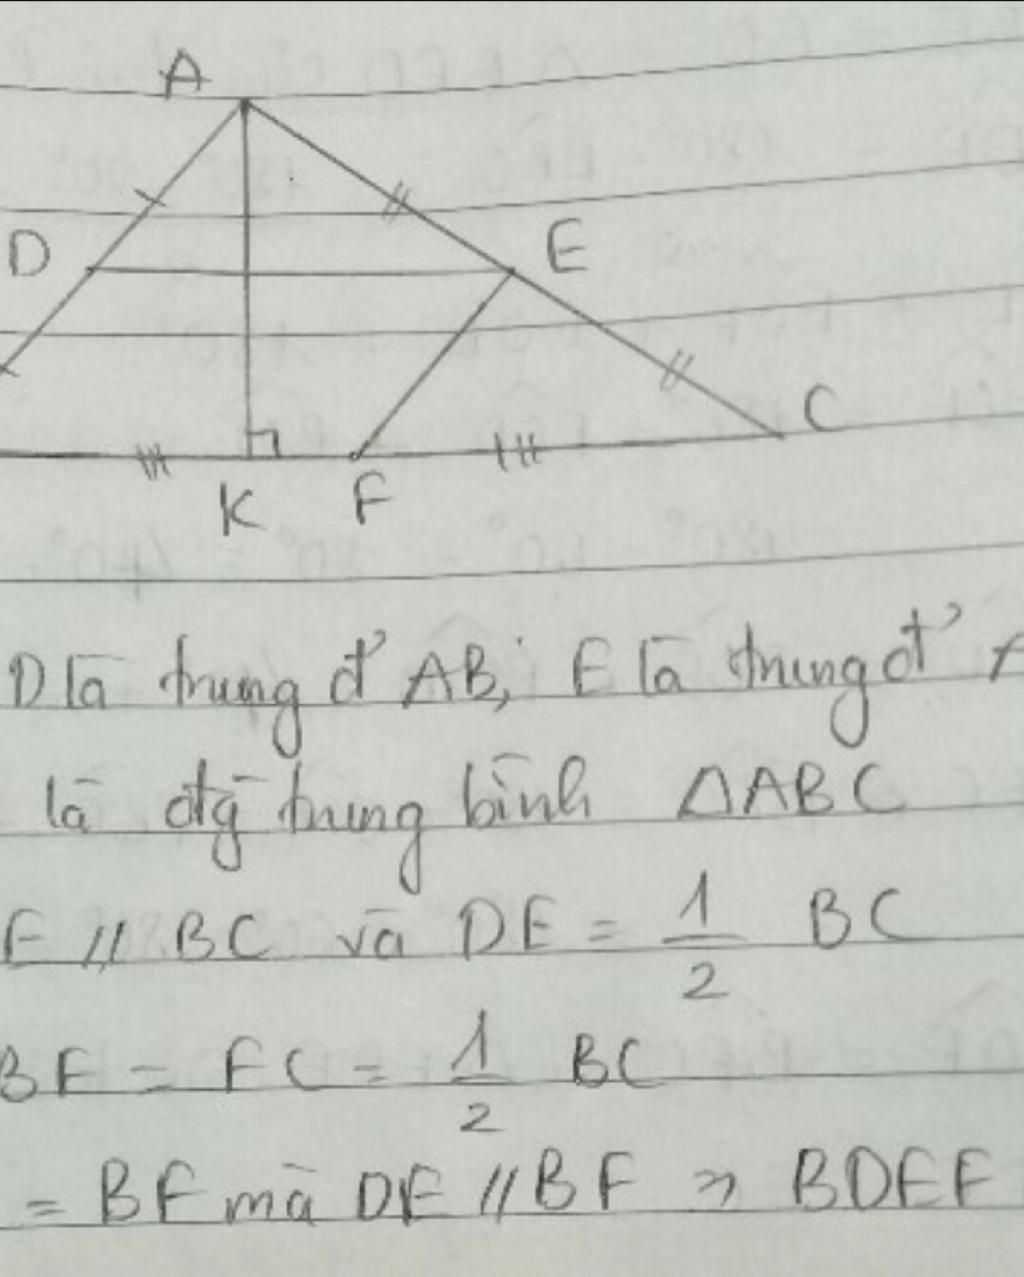 A
D E
C
K F
D là trung đ' AB; E là trung đ' A
là đg trung bình ΔABC
E // BC và DE = 1/2 BC
BF = FC = 1/2 BC
= BF mà DE // BF => BDEF